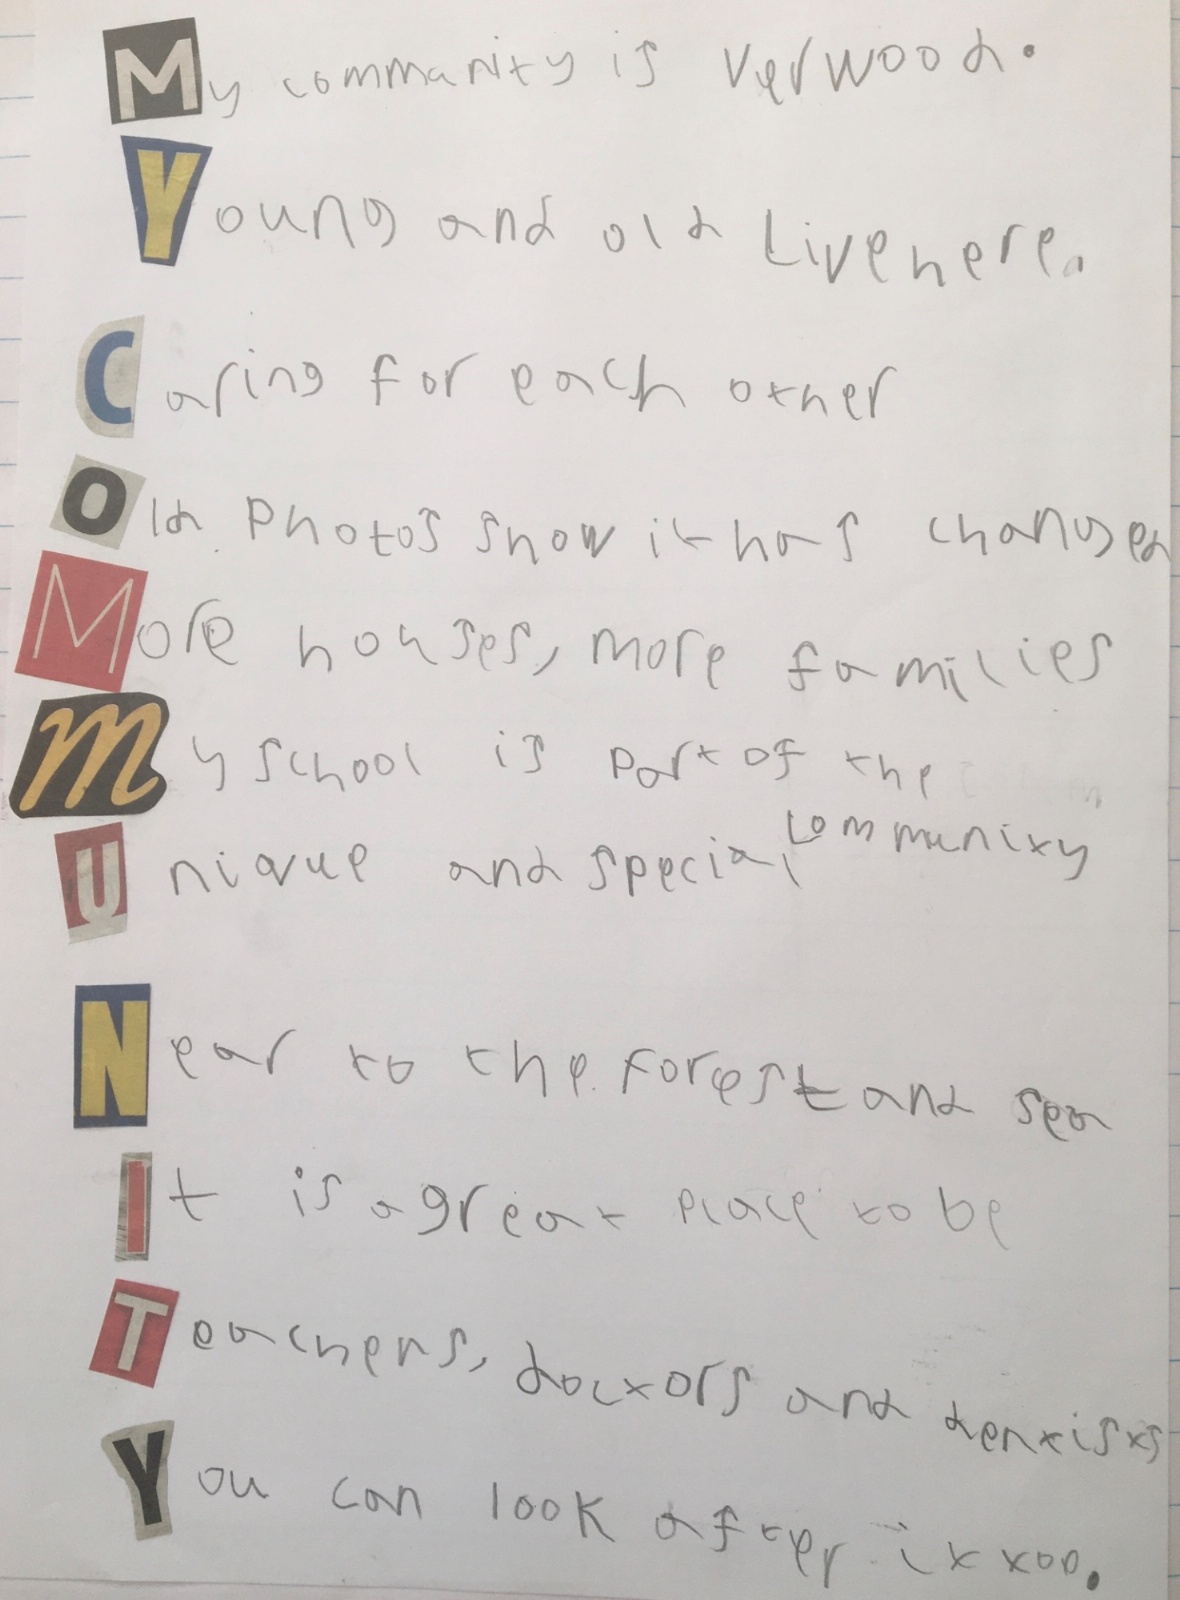 My community is Verwood.
Young and old Live here.
Caring for each other
Old Photos show it has changed
More houses, more families
My school is part of the
community
Unique and special
Near to the forest and sea
It is a great place to be
Teachers, doctors and dentists
You can look after it too.